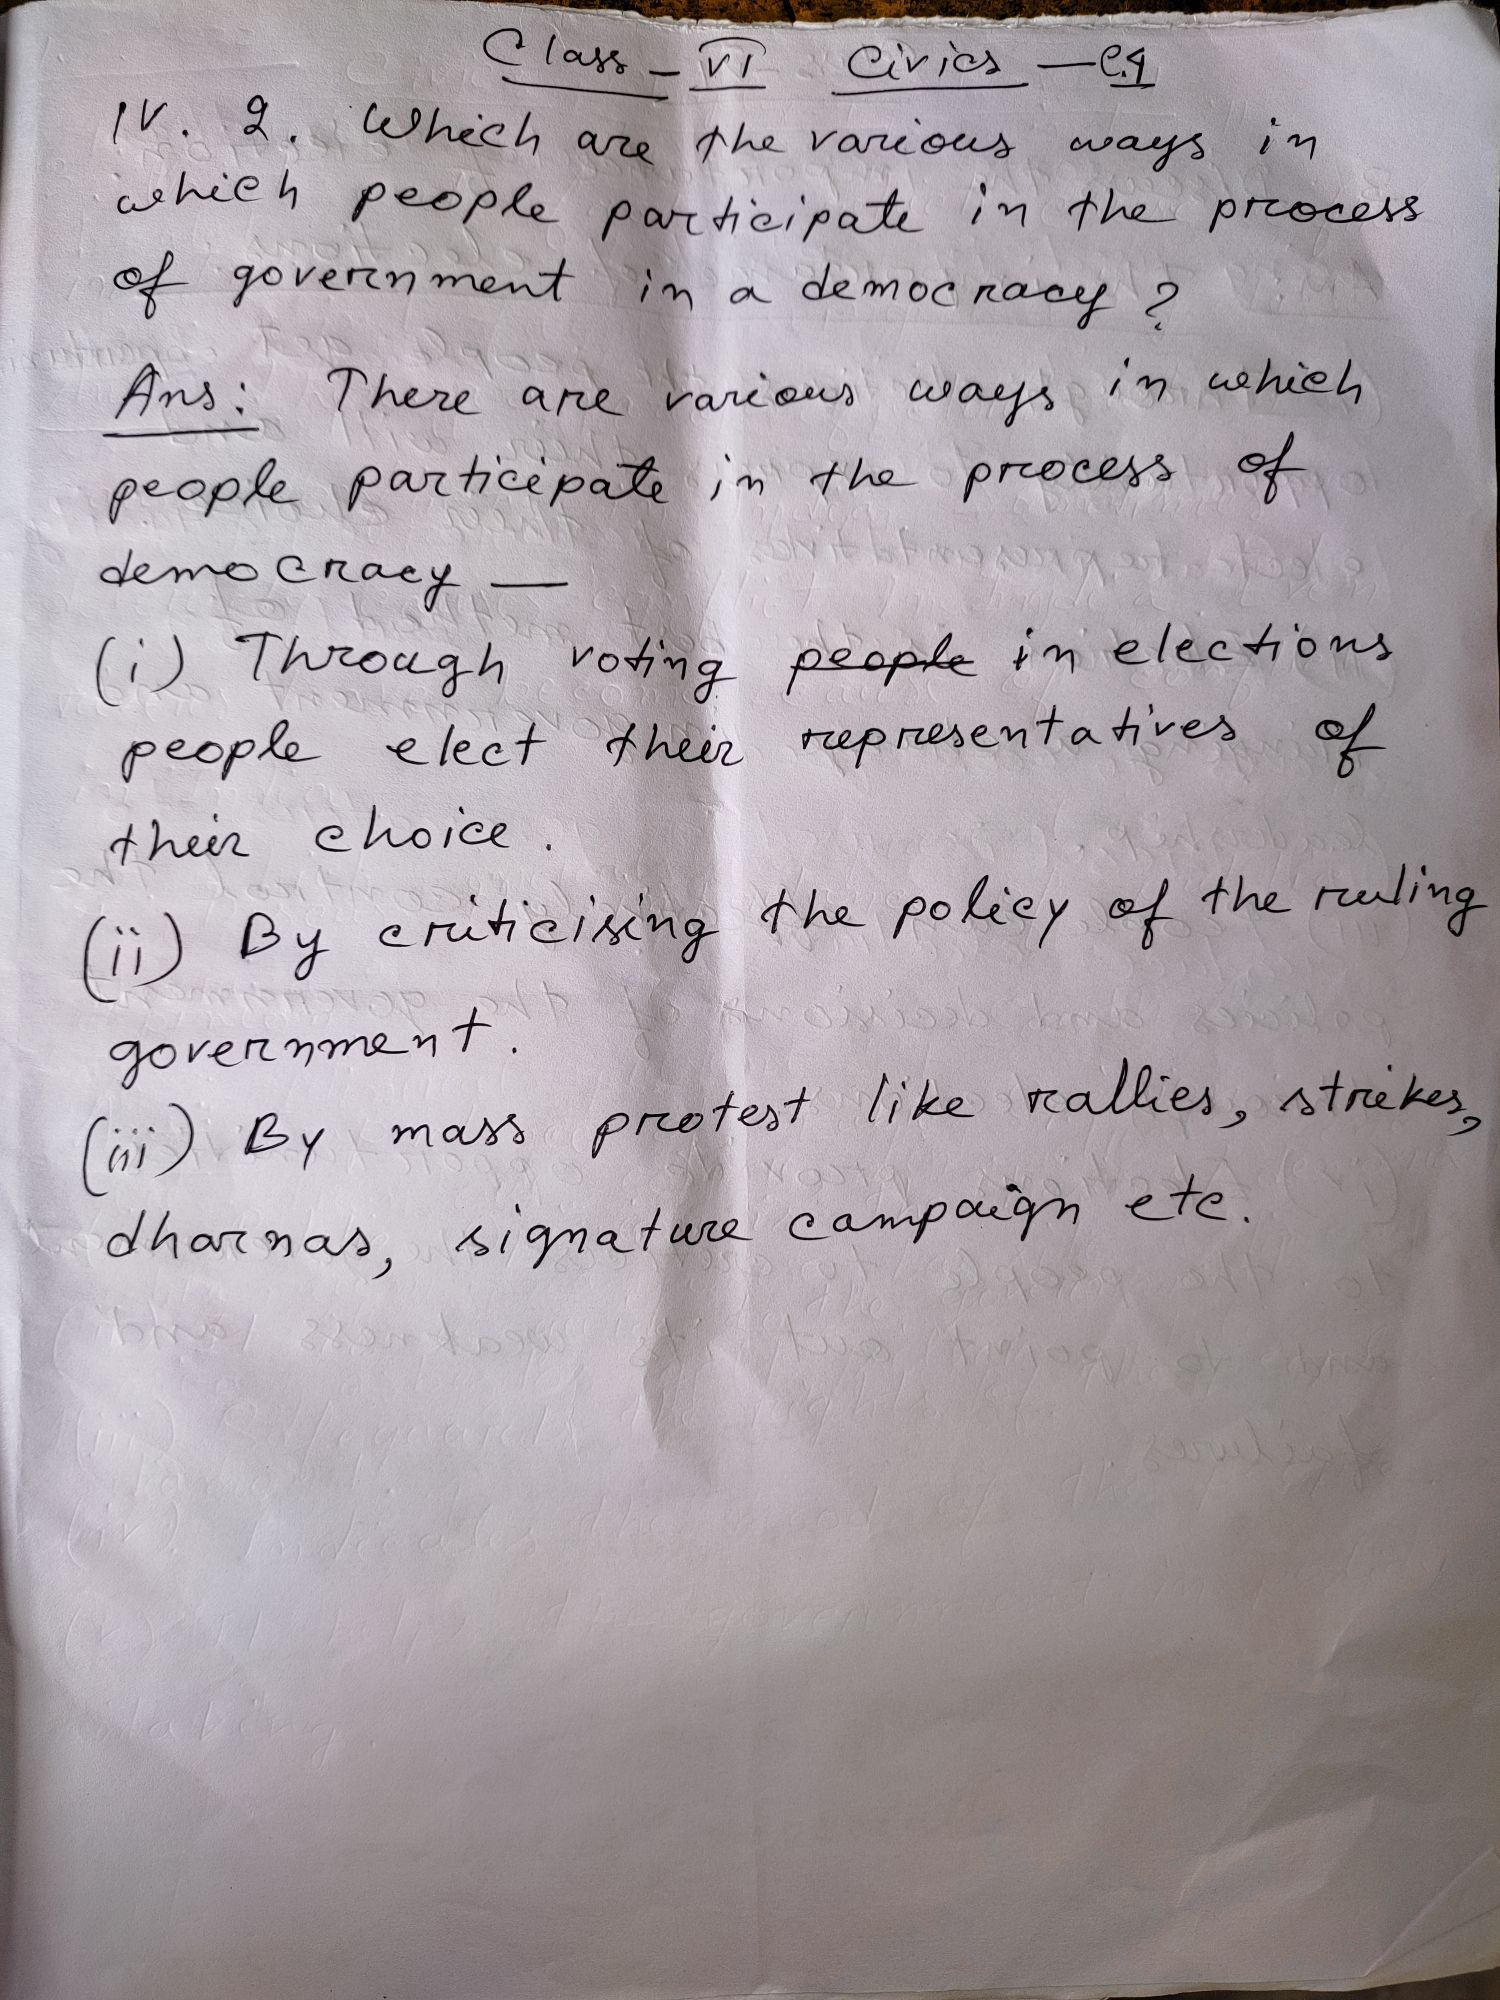 Class - VI Civics - C.4
IV. 2. Which are the various ways in
which people participate in the process
of government in a democracy ?
Ans: There are various ways in which
people participate in the process of
democracy —
(i) Through voting people in elections
people elect their representatives of
their choice.
(ii) By criticising the policy of the ruling
government.
(iii) By mass protest like rallies, strikes,
dharnas, signature campaign etc.